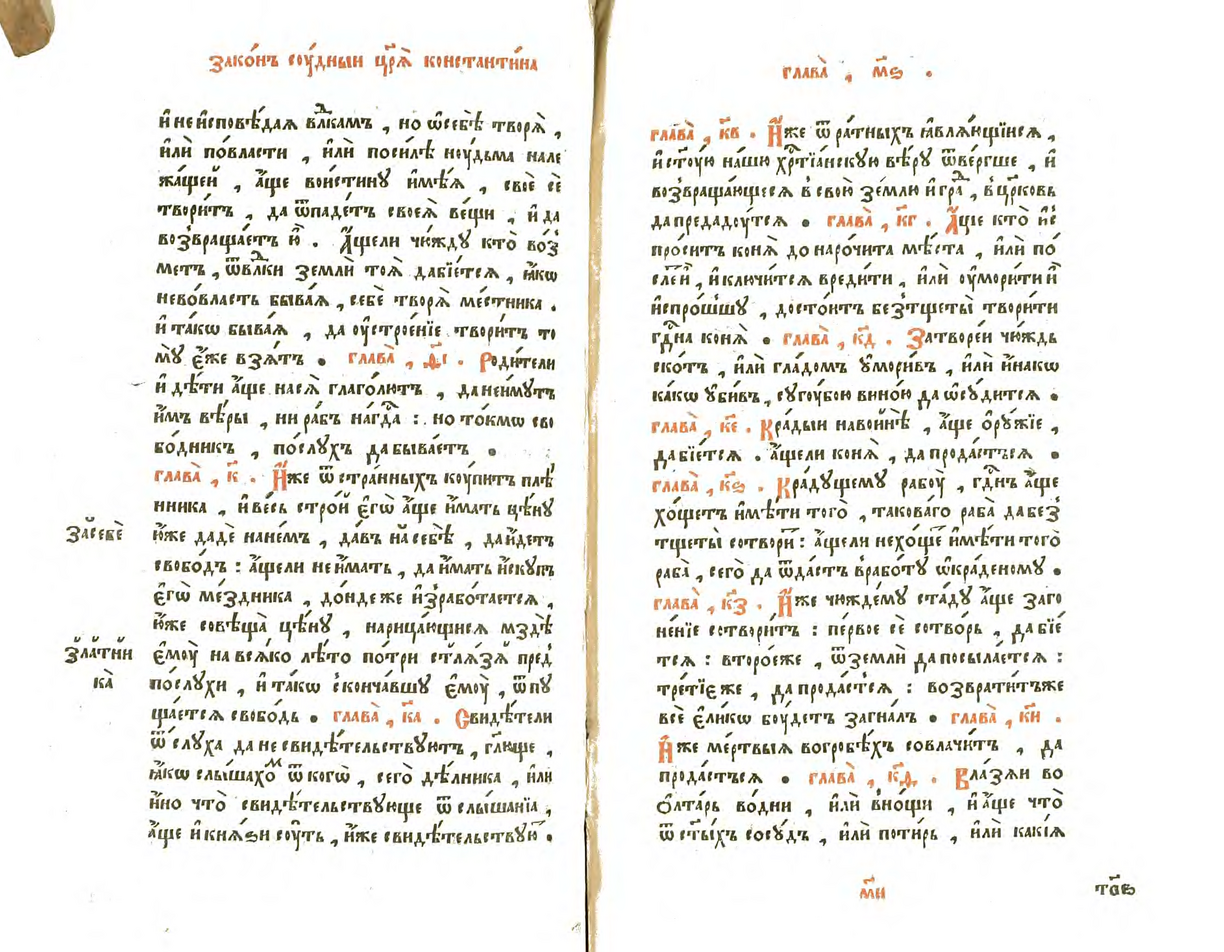 Зако́нъ сꙋ́дныи цр҃ѧ̀ константи́на
и҆ не и҆сповѣ́даѧ влⷣкамъ , но ѡ҆ себѣ̀ творѧ̀ ,
и҆лѝ по́власти , и҆лѝ поси́лѣ ноу́дьма нале
жа́щей , а҆́ще вои́стинꙋ и҆мѣ́ѧ , своѐ сѐ
твори́тъ , да ѿпаде́тъ своеѧ̀ ве́щи , и҆ да
возвраща́етъ ю҆̀ . А҆́щели чю́ждꙋ кто̀ во́з
метъ , ѿ влⷣки землѝ тоѧ̀ да бїе́тсѧ , ꙗ҆́кѡ
не во́власть быва́ѧ , себѐ творѧ̀ ме́стника .
и҆ та́кѡ быва́ѧ , да ᲂу҆строе́нїе твори́тъ то
мꙋ̀ є҆́же взѧ́тъ . глава̀ , ѳ҃і . Роди́тели
и҆ дѣ́ти а҆́ще на сѧ̀ глаго́лютъ , да не и҆́мꙋтъ
и҆̀мъ вѣ́ры , ни ра́бъ на гдⷭ҇а :. но то́кмѡ сво
бо́дникъ , по́слꙋхъ да быва́етъ .
глава̀ , к҃ . И҆́же ѿ стра́нныхъ кꙋ́питъ плѣ́
нника , и҆ ве́сь стро́й є҆гѡ̀ а҆́ще и҆́мать цѣ́нꙋ
ю҆́же дадѐ на не́мъ , да́въ на̀ себѣ̀ , да и҆́детъ
свобо́дъ : а҆́щели не и҆́мать , да и҆́мать и҆скꙋ́пъ
є҆гѡ̀ ме́здника , до́нде же и҆зрабо́таетсѧ ,
ю҆́же совѣща̀ цѣ́нꙋ , нарица́ющисѧ мздѣ̀
є҆мꙋ̀ на всѧ́ко лѣ́то по́ три стлѧ́зѧ пред̾
по́слꙋхи , и҆ та́кѡ сконча́вшꙋ є҆мꙋ̀ , ѿпꙋ
ща́етсѧ свобо́дь . глава̀ , к҃а . Свидѣ́тели
ѿ слꙋ́ха да не свидѣ́тельствꙋютъ , гл҃юще ,
ꙗ҆́кѡ слы́шахоⷨ ѿ когѡ̀ , сего̀ дѣ́лника , или
и҆́но что̀ свидѣ́тельствꙋюще ѿ слы́шанїа ,
а҆́ще и҆ кнѧ́ѕи сꙋ́ть , и҆́же свидѣ́тельствꙋюⷮ .
за̀ себѐ
зла́тни
ка̀
глава̀ , м҃ѕ .
глава̀ , к҃в . И҆́же ѿ ра́тныхъ ꙗ҆влѧ́ющїисѧ ,
и҆ ст҃ꙋ́ю на́шю хрⷭ҇тїа́нскꙋю вѣ́рꙋ ѿве́ргше , и҆
возвраща́ющесѧ в свою̀ зе́млю и҆ граⷣ , в цр҃ковь
да предадꙋ́тсѧ . глава̀ , к҃г . А҆́ще кто̀ и҆с
про́ситъ конѧ̀ до наро́чита мѣ́ста , и҆лѝ по
сле́й , и҆ ключи́тсѧ вреди́ти , и҆лѝ ᲂу҆мори́ти и҆̀
и҆спро́шшꙋ , досто́итъ без̾ тщеты̀ твори́ти
гдⷭ҇на конѧ̀ . глава̀ , к҃д . Затвореи́ чю́ждь
ско́тъ , и҆лѝ гла́домъ ᲂу҆мори́въ , и҆лѝ и҆́накѡ
ка́кѡ ᲂу҆би́въ , сꙋгꙋ́бою вино́ю да ѡ҆сꙋ́дитсѧ .
глава̀ , к҃е . Кра́дыи на войнѣ̀ , а҆́ще ѻ҆рꙋ́жїе ,
да бїе́тсѧ . а҆́щели конѧ̀ , да прода́стьсѧ .
глава̀ , к҃ѕ . Кра́дꙋщемꙋ рабꙋ̀ , гдⷭ҇нъ а҆́ще
хо́щетъ и҆мѣ́ти того̀ , такова́го раба̀ да без̾
тщеты̀ сотвори́ : а҆́щели не хо́ще и҆мѣ́ти того̀
раба̀ , сего̀ да ѿда́стъ в рабо́тꙋ ѡ҆кра́деномꙋ .
глава̀ , к҃з . И҆́же чю́ждемꙋ ста́дꙋ а҆́ще заго
не́нїе сотвори́тъ : пе́рвое сѐ сотво́рь , да бїе́
тсѧ : второ́еже , ѿ землѝ да посыла́етсѧ :
тре́тїеже , да прода́стсѧ : возврати́тъже
всѐ є҆ли́кѡ бꙋ́детъ загна́лъ . глава̀ , к҃и .
И҆́же ме́ртвыѧ во гробѣ́хъ совлачи́тъ , да
прода́стьсѧ . глава̀ , к҃ѳ . Вла́зѧи во
ѻ҆лта́рь во́ дни , и҆лѝ в но́щи , и҆ а҆́ще что̀
ѿ ст҃ы́хъ сосꙋ́дъ , и҆лѝ поти́рь , и҆лѝ какі́ѧ
м҃и